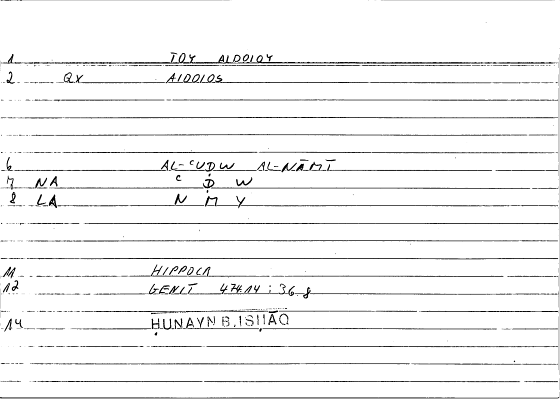 1 TOY AIDOIOY
2 QX AIDOIOS
6 AL-ʿUḌW AL-NĀMĪ
7 NA ʿ Ḍ W
8 LA N M Y
11 HIPPOCR
12 GENIT 474.14 : 36.8
14 ḤUNAYN B. ISḤĀQ